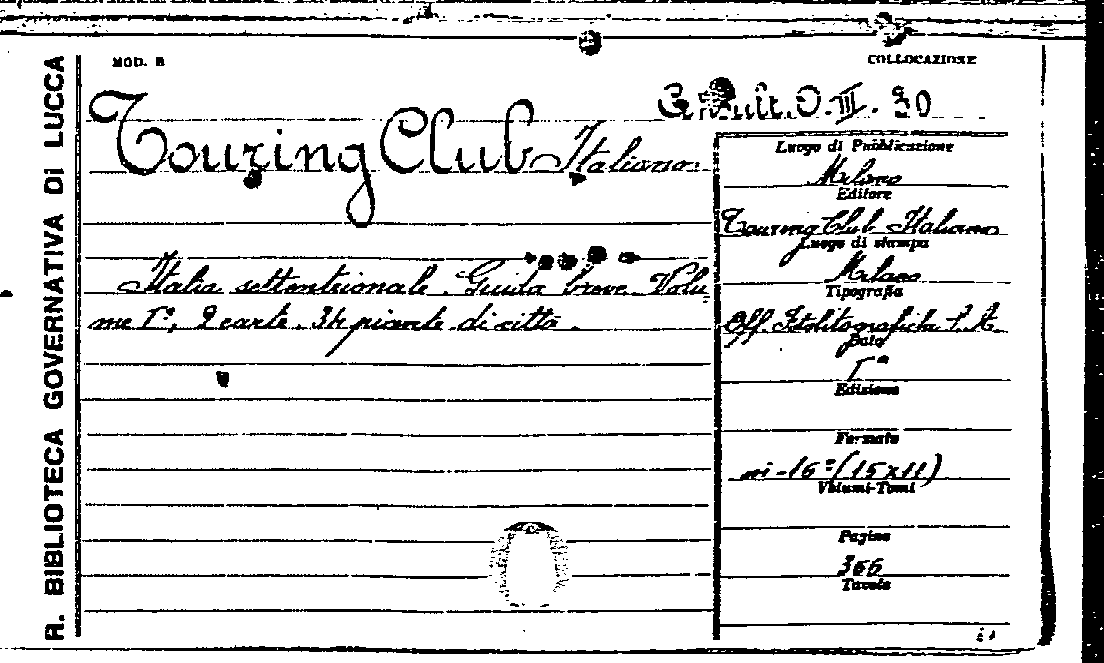 R. BIBLIOTECA GOVERNATIVA DI LUCCA
MOD. B
COLLOCAZIONE
O. III. 30
Touring Club Italiano
Italia settentrionale. Guida breve. Volu=
me I°, 9 carte. 34 piante di città.
Luogo di Pubblicazione
Milano
Editore
Touring Club Italiano
Luogo di stampa
Milano
Tipografia
Off. Fotolitografiche S. A.
Data
I^a
Edizione
Formato
in-16°(15x11)
Volumi-Tomi
Pagine
366
Tavole